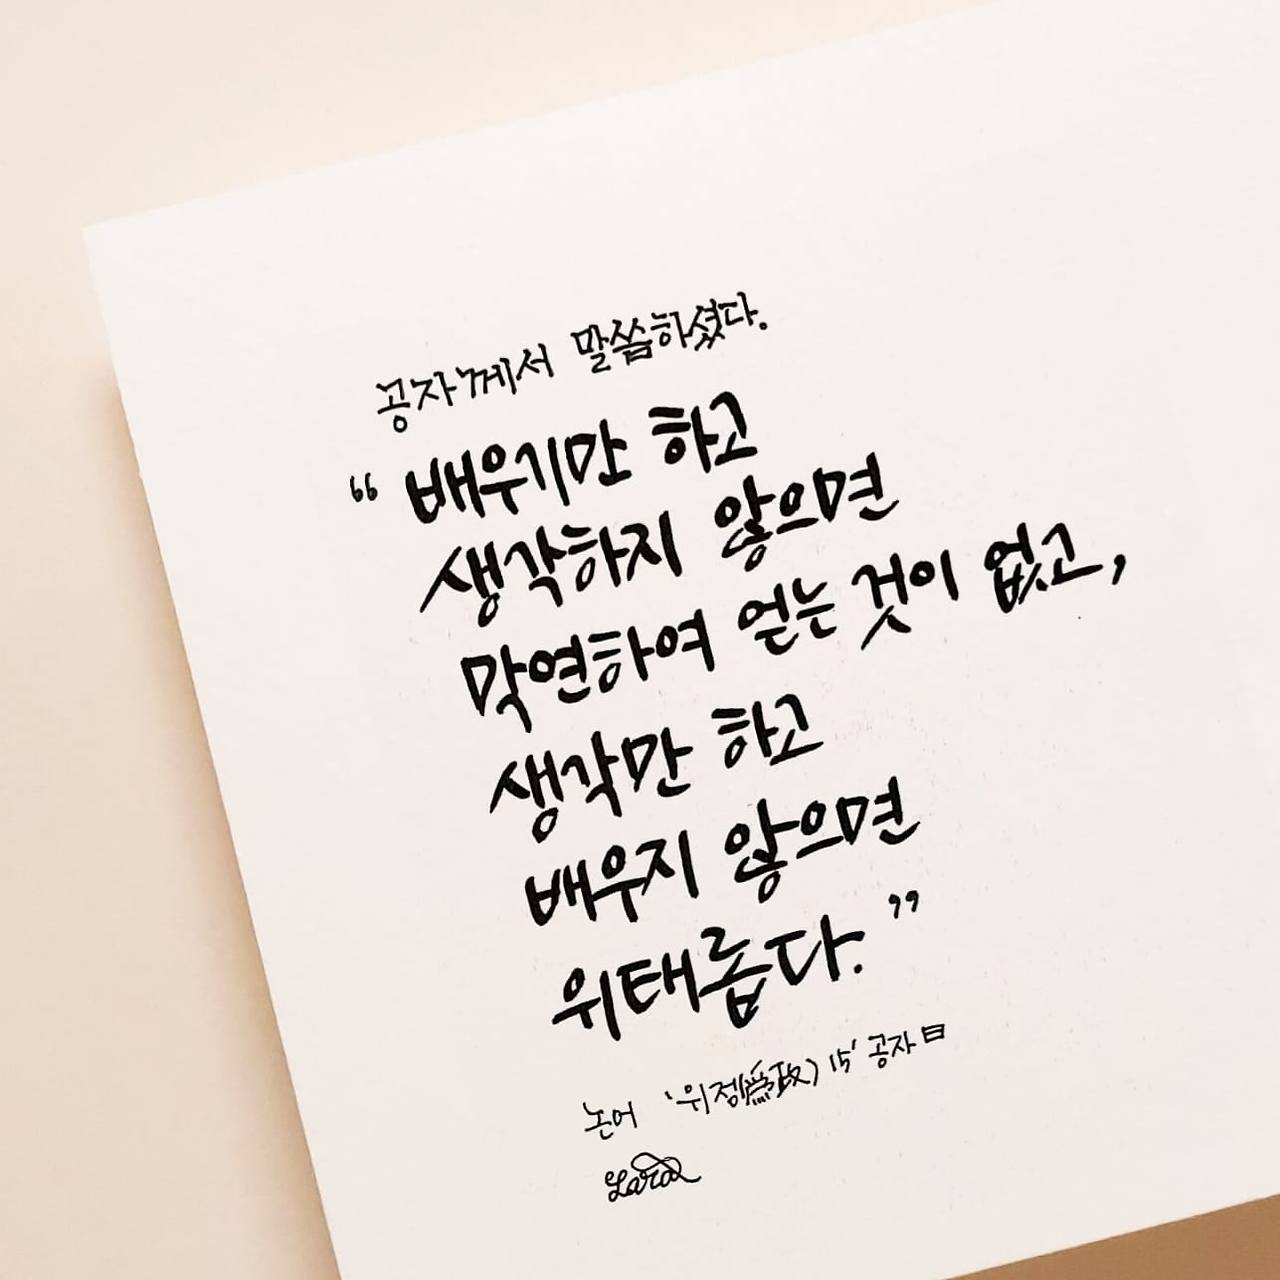 공자께서 말씀하셨다.
“ 배우기만 하고
생각하지 않으면
막연하여 얻는 것이 없고,
생각만 하고
배우지 않으면
위태롭다. ”
논어 ‘위정(爲政) 15’ 공자 曰
Lara